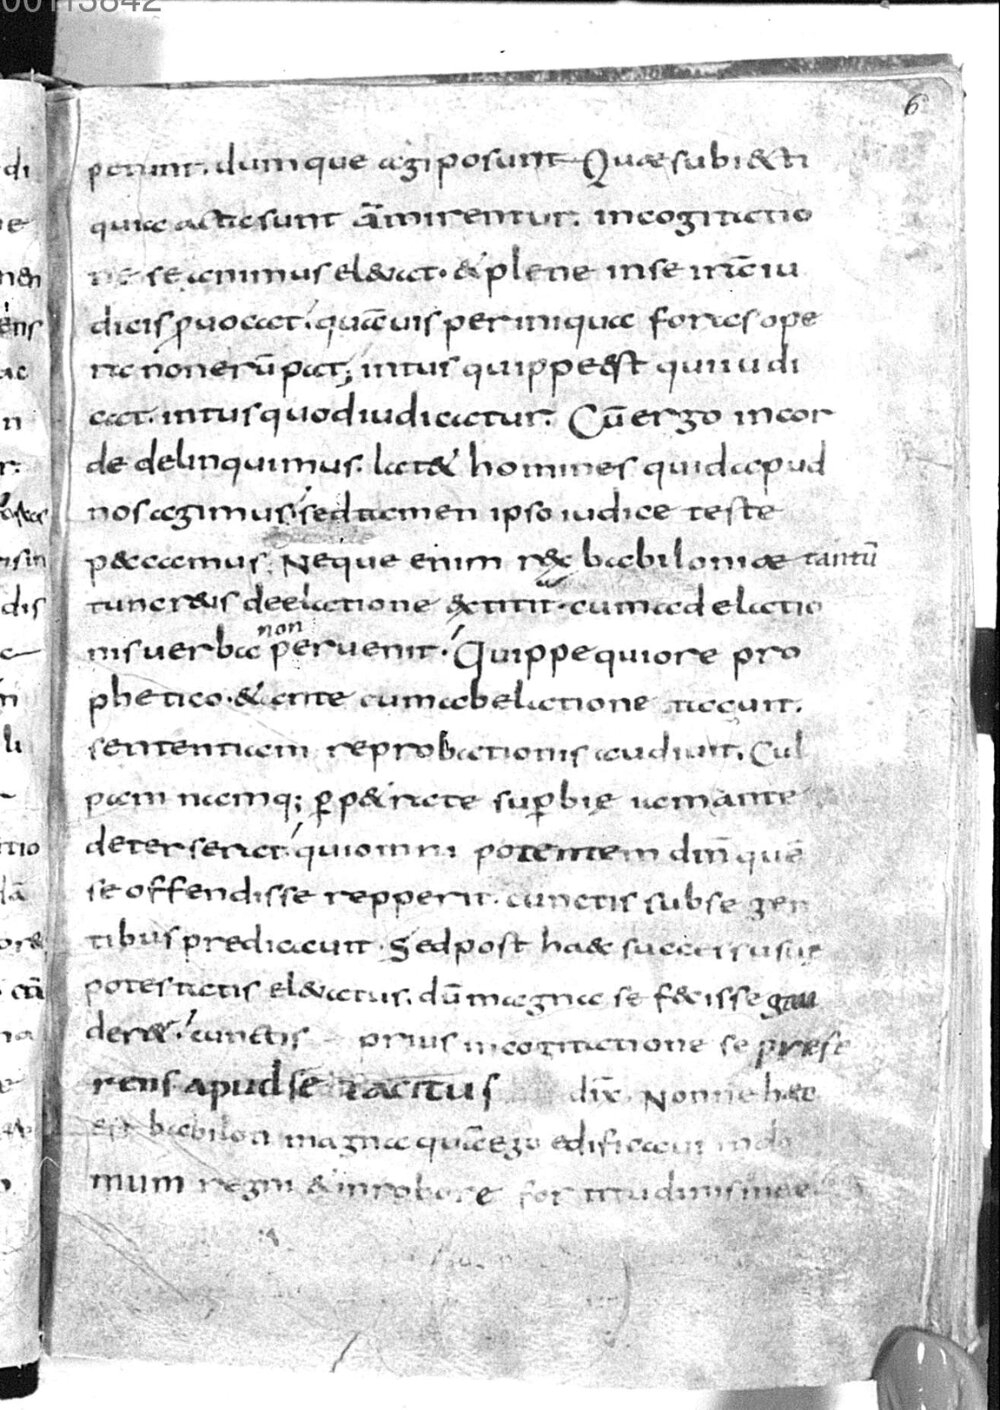 00113842
6
petunt. dumque agi posunt Quae subiecti
quia actae sunt āmirentur. in cogitatio
ne se animus eleuat. & plene in se irā iu
dicis ꝓuocat. quāuis per iniqua foras ope
ra non erūpat; intus quippe est qui iudi
cat. intus quod iudicatur. Cū ergo in cor
de delinquimus. lat& homines quid apud
nos agimus. sed tamen ipso iudice teste
peccamus. Neque enim rex babiloniae tantū
tunc reus de elatione extitit. cum ad elatio
nis uerba non peruenit. Quippe qui ore pro
phetico. & ante cum ab elatione tacuit.
sententiam reprobationis audiuit. Cul
pam namq; ꝑp&ratae suꝑbię iam ante
deterserat. qui omnipotentem dn̄ quē
se offendisse repperit. cunctis sub se gen
tibus predicauit. Sed post haec successu suae
potestatis eleuatus. dū magna se fecisse gau
der&. cunctis prius in cogitatione se prefe
rens apud se tacitus dix̄. Nonne haec
est babilon magna quā ego edificaui in do
mum regni & in robore fortitudinis meae